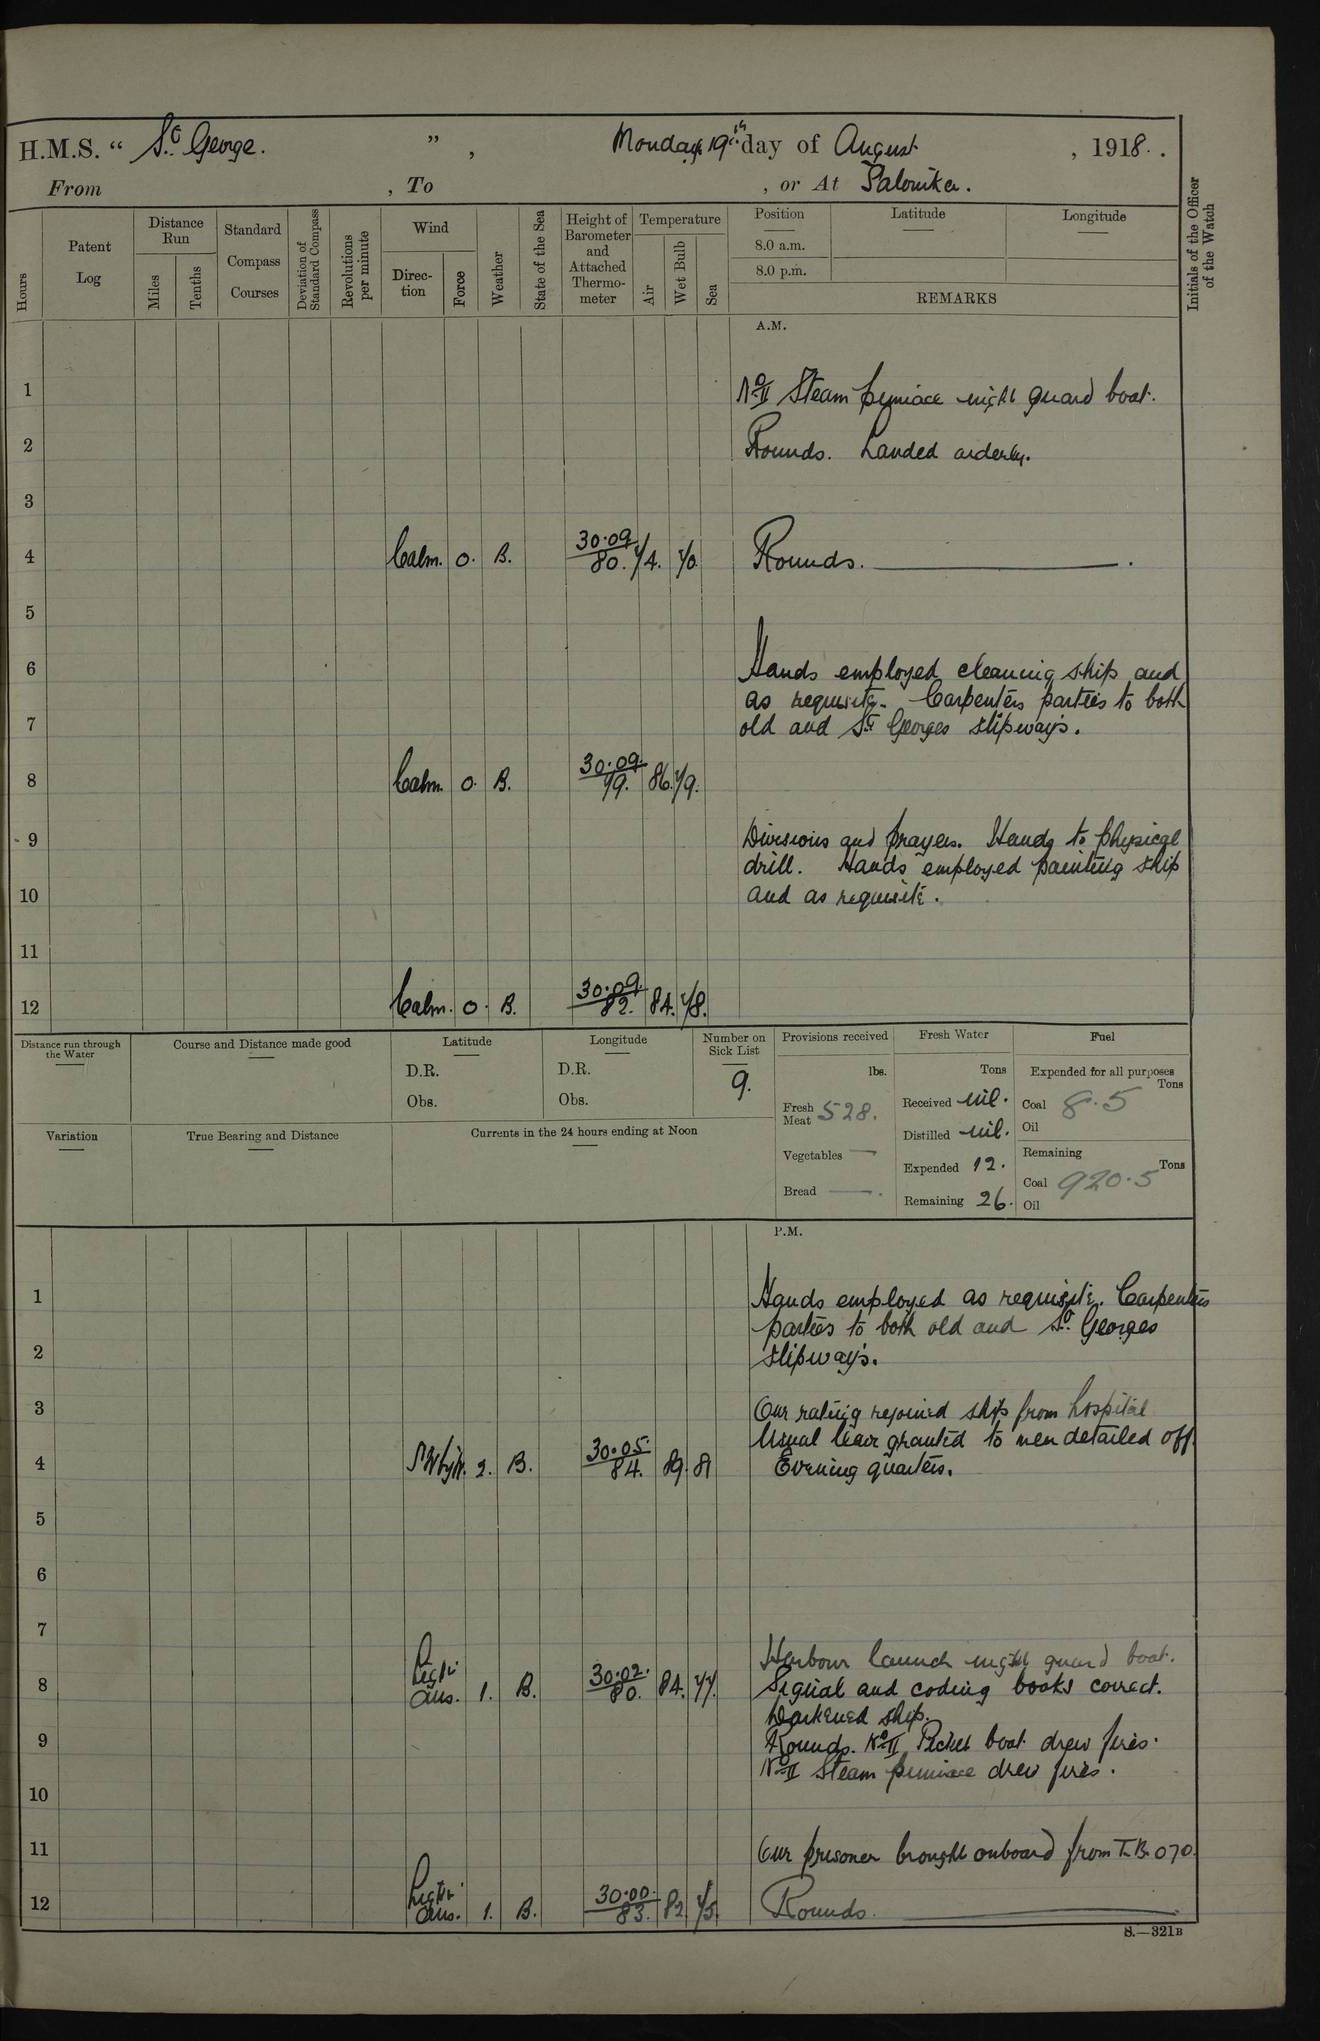 H.M.S. “ St George. ” , Monday 19th day of August , 1918. .
From , To , or At Salonika.
Hours
Patent Log
Distance Run
Miles
Tenths
Standard Compass Courses
Deviation of Standard Compass
Revolutions per minute
Wind
Direc-tion
Force
Weather
State of the Sea
Height of Barometer and Attached Thermo-meter
Temperature
Air
Wet Bulb
Sea
Position
8.0 a.m.
8.0 p.m.
Latitude
Longitude
REMARKS
Initials of the Officer of the Watch
A.M.
1 No II Steam pinnace night guard boat.
2 Rounds. Landed orderly.
3
4 Calm. 0. B. 30.09 80. 74. 70. Rounds.
5
6 Hands employed cleaning ship and
as requisite. Carpenters parties to both
7 old and St Georges slipways.
8 Calm. 0. B. 30.09. 79. 86. 79.
9 Divisions and prayers. Hands to physical
drill. Hands employed painting ship
10 and as requisite.
11
12 Calm. 0. B. 30.09. 82. 84. 78.
Distance run through the Water
Course and Distance made good
Latitude
D.R.
Obs.
Longitude
D.R.
Obs.
Number on Sick List
9.
Provisions received
lbs.
Fresh Meat 528.
Vegetables —
Bread —.
Fresh Water
Tons
Received nil.
Distilled nil.
Expended 12.
Remaining 26.
Fuel
Expended for all purposes
Tons
Coal 8.5
Oil
Remaining
Tons
Coal 920.5
Oil
Variation
True Bearing and Distance
Currents in the 24 hours ending at Noon
P.M.
1 Hands employed as requisite. Carpenters
parties to both old and St Georges
2 slipways.
3 One rating rejoined ship from hospital
Usual leave granted to men detailed off.
4 2. B. 30.05. 84. 89. 81 Evening quarters.
5
6
7
Harbour launch night guard boat.
8 Light airs. 1. B. 30.02. 80. 84. 77. Signal and coding books correct.
Darkened ship.
9 Rounds. No II Picket boat drew fires.
No II Steam pinnace drew fires.
10
11 One prisoner brought onboard from T.B. 070.
12 Light airs. 1. B. 30.00. 83. 82 75. Rounds.
S.—321B